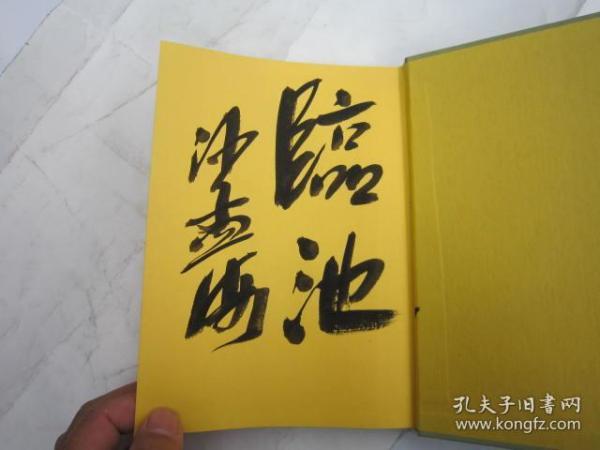 臨池
沙孟海
孔夫子旧书网
www.kongfz.com